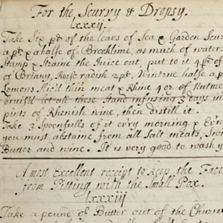 For the Scurvy & Dropsy.
lxxxij.
Take Six pt of the leares of Sea & Garden Scur
a pt & a halfe of Brooklime, as much of water
Stamp & Straine the Juice out, put to it 4 pt of
of horse radish 2 pt. Winters halfe a p
Lemons, sliced thin meat & Rine 40 of Nutme
all these Stand infusing 3 days in
pints of Rhenish wine, then distill it.
Take 3 Spoonfulls of it every morning & Even
you must abstaine from all Salt meats,
Butter and wine. It is very good to wash y
A most excellent receipt to keep the Face
from Pitting with the Small Pox.
lxxxiij
Take a penne of Butter out of the Churne